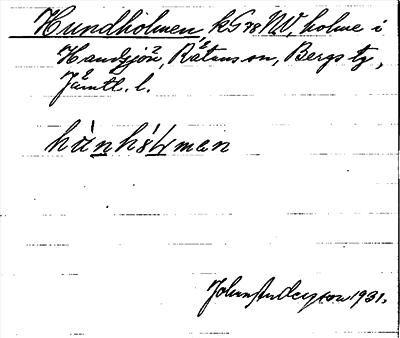 Hundholmen, kG 78 NV, holme i
Handsjön, Rätans sn, Bergs tg,
Jämtl. l.
hùnhó̤Lmen
John Anderzon 1931.